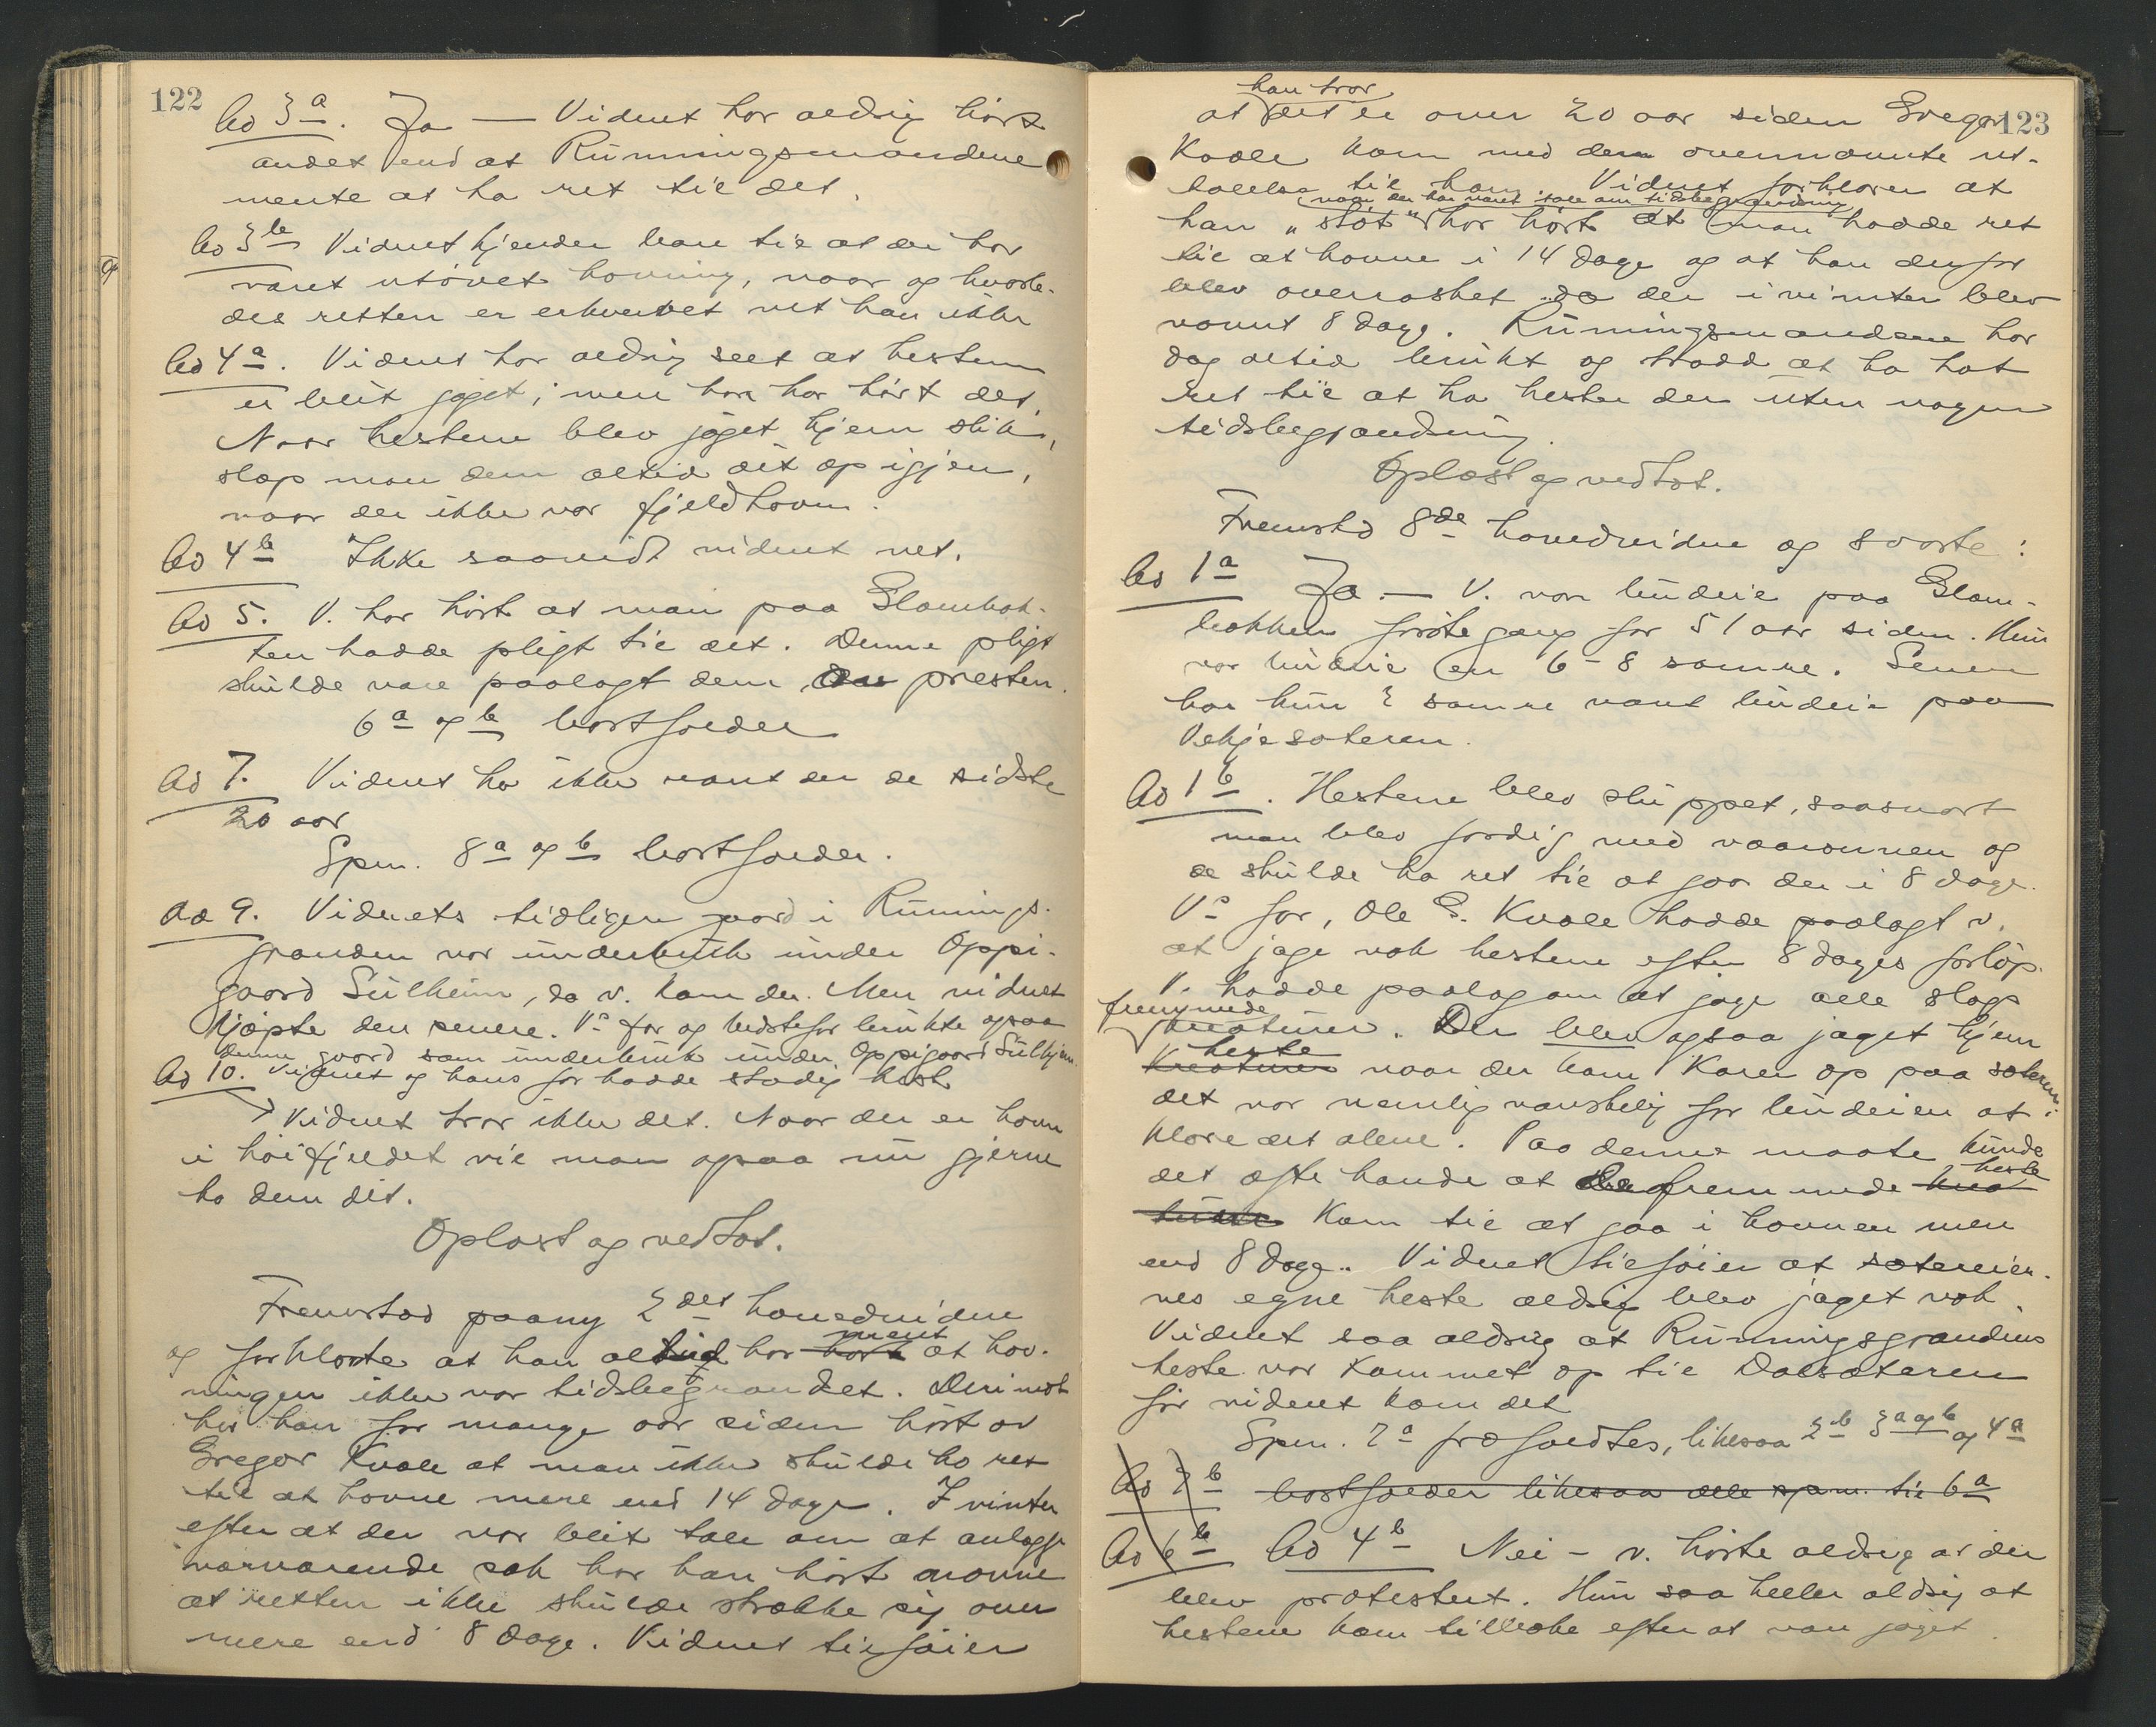 122
Ad 3a. Ja — Vidnet har aldrig hørt
andet end at Rünningsmændene
mente at ha ret til det.
Ad 3b Vidnet kjender kun til at der har
været utøvet havning, naar og hvorle-
des retten er erhvervet vet han ikke
Ad 4a. Vidnet har aldrig seet at hestene
er blit jaget; men han har hørt det.
Naar hestene blev jaget hjem slik,
slap man dem altid dit op igjen,
naar der ikke var fjeldhavn.
Ad 4b Ikke saavidt vidnet vet.
Ad 5. V. har hørt at man paa Glambak-
ken hadde pligt til det. Denne pligt
skulde være paalagt dem av presten.
6a og b bortfalder
Ad 7. Vidnet har ikke vært der de sidste
20 aar
Spm. 8a og b bortfalder.
Ad 9. Vidnets tidligere gaard i Rünnings-
granden var underbruk under Oppi-
gaard Sulheim, da v. kom der. Men vidnet
kjøpte den senere. Vs far og bedstefar brukte ogsaa
denne gaard som underbruk under Oppigaard Sulhjem.
Ad 10. Vidnet og hans far hadde stadig hest
Vidnet tror ikke det. Naar der er havn
i høifjeldet vil man ogsaa nu gjerne
ha dem dit.
Oplæst og vedtat.
Fremstod paany 2det hovedvidne
og forklarte at han altid har hørt ment at hav-
ningen ikke var tidsbegrændset. Derimot
har han for mange aar siden hørt av
Gregor Kvale at man ikke skulde ha ret
til at havne mere end 14 dage. I vinter
efter at der var blit tale om at anlægge
nærværende sak har han hørt
at retten ikke skulde strække sig over
mere end 8 dage. Vidnet tilføier
123
han tror
at det er over 20 aar siden Gregor
Kvale kom med den ovennævnte ut-
talelse til ham. Vidnet forklarer at
naar der har været tale om tidsbegrændsning
han "støt" har hørt at man hadde ret
til at havne i 14 dage og at han derfor
blev overrasket da der i vinter blev
nævnt 8 dage. Rünningsmændene har
dog altid brukt og trodd at ha hat
ret til at ha hester der uten nogen
tidsbegrændsning.
Oplæst og vedtat.
Fremstod 8de hovedvidne og svarte:
Ad 1a Ja. — V. var budeie paa Glam-
bakken første gang for 51 aar siden. Hun
var budeie en 6-8 somre. Senere
har hun 2 somre vært budeie paa
Vekjesæteren.
Ad 1b. Hestene blev sluppet, saasnart
man blev færdig med vaaronnen og
de skulde ha ret til at gaa der i 8 dage.
Vs far, Ole G. Kvale hadde paalagt v.
at jage væk hestene efter 8 dages forløp.
V. hadde paalæg om at jage alle slags
fremmede
kreaturer. Der blev ogsaa jaget hjem
heste
kreaturer naar der kom karer op paa sæteren;
det var nemlig vanskelig for budeien at
klare det alene. Paa denne maate kunde
heste
det ofte hænde at de fremmede krea-
turer kom til at gaa i havnen mer
end 8 dage. Vidnet tilføier at sætereier-
nes egne heste aldrig blev jaget væk.
Vidnet saa aldrig at Rünningsgrandens
heste var kommet op til Dalsæteren
før vidnet kom dit
Spm. 2a frafaldtes, likesaa 2b 3a og b og 4a
Ad 2b bortfalder likesaa alle spm. til 6a
Ad 6b Ad 4b Nei - v. hørte aldrig at der
blev protestert. Hun saa heller aldrig at
hestene kom tilbake efter at være jaget.